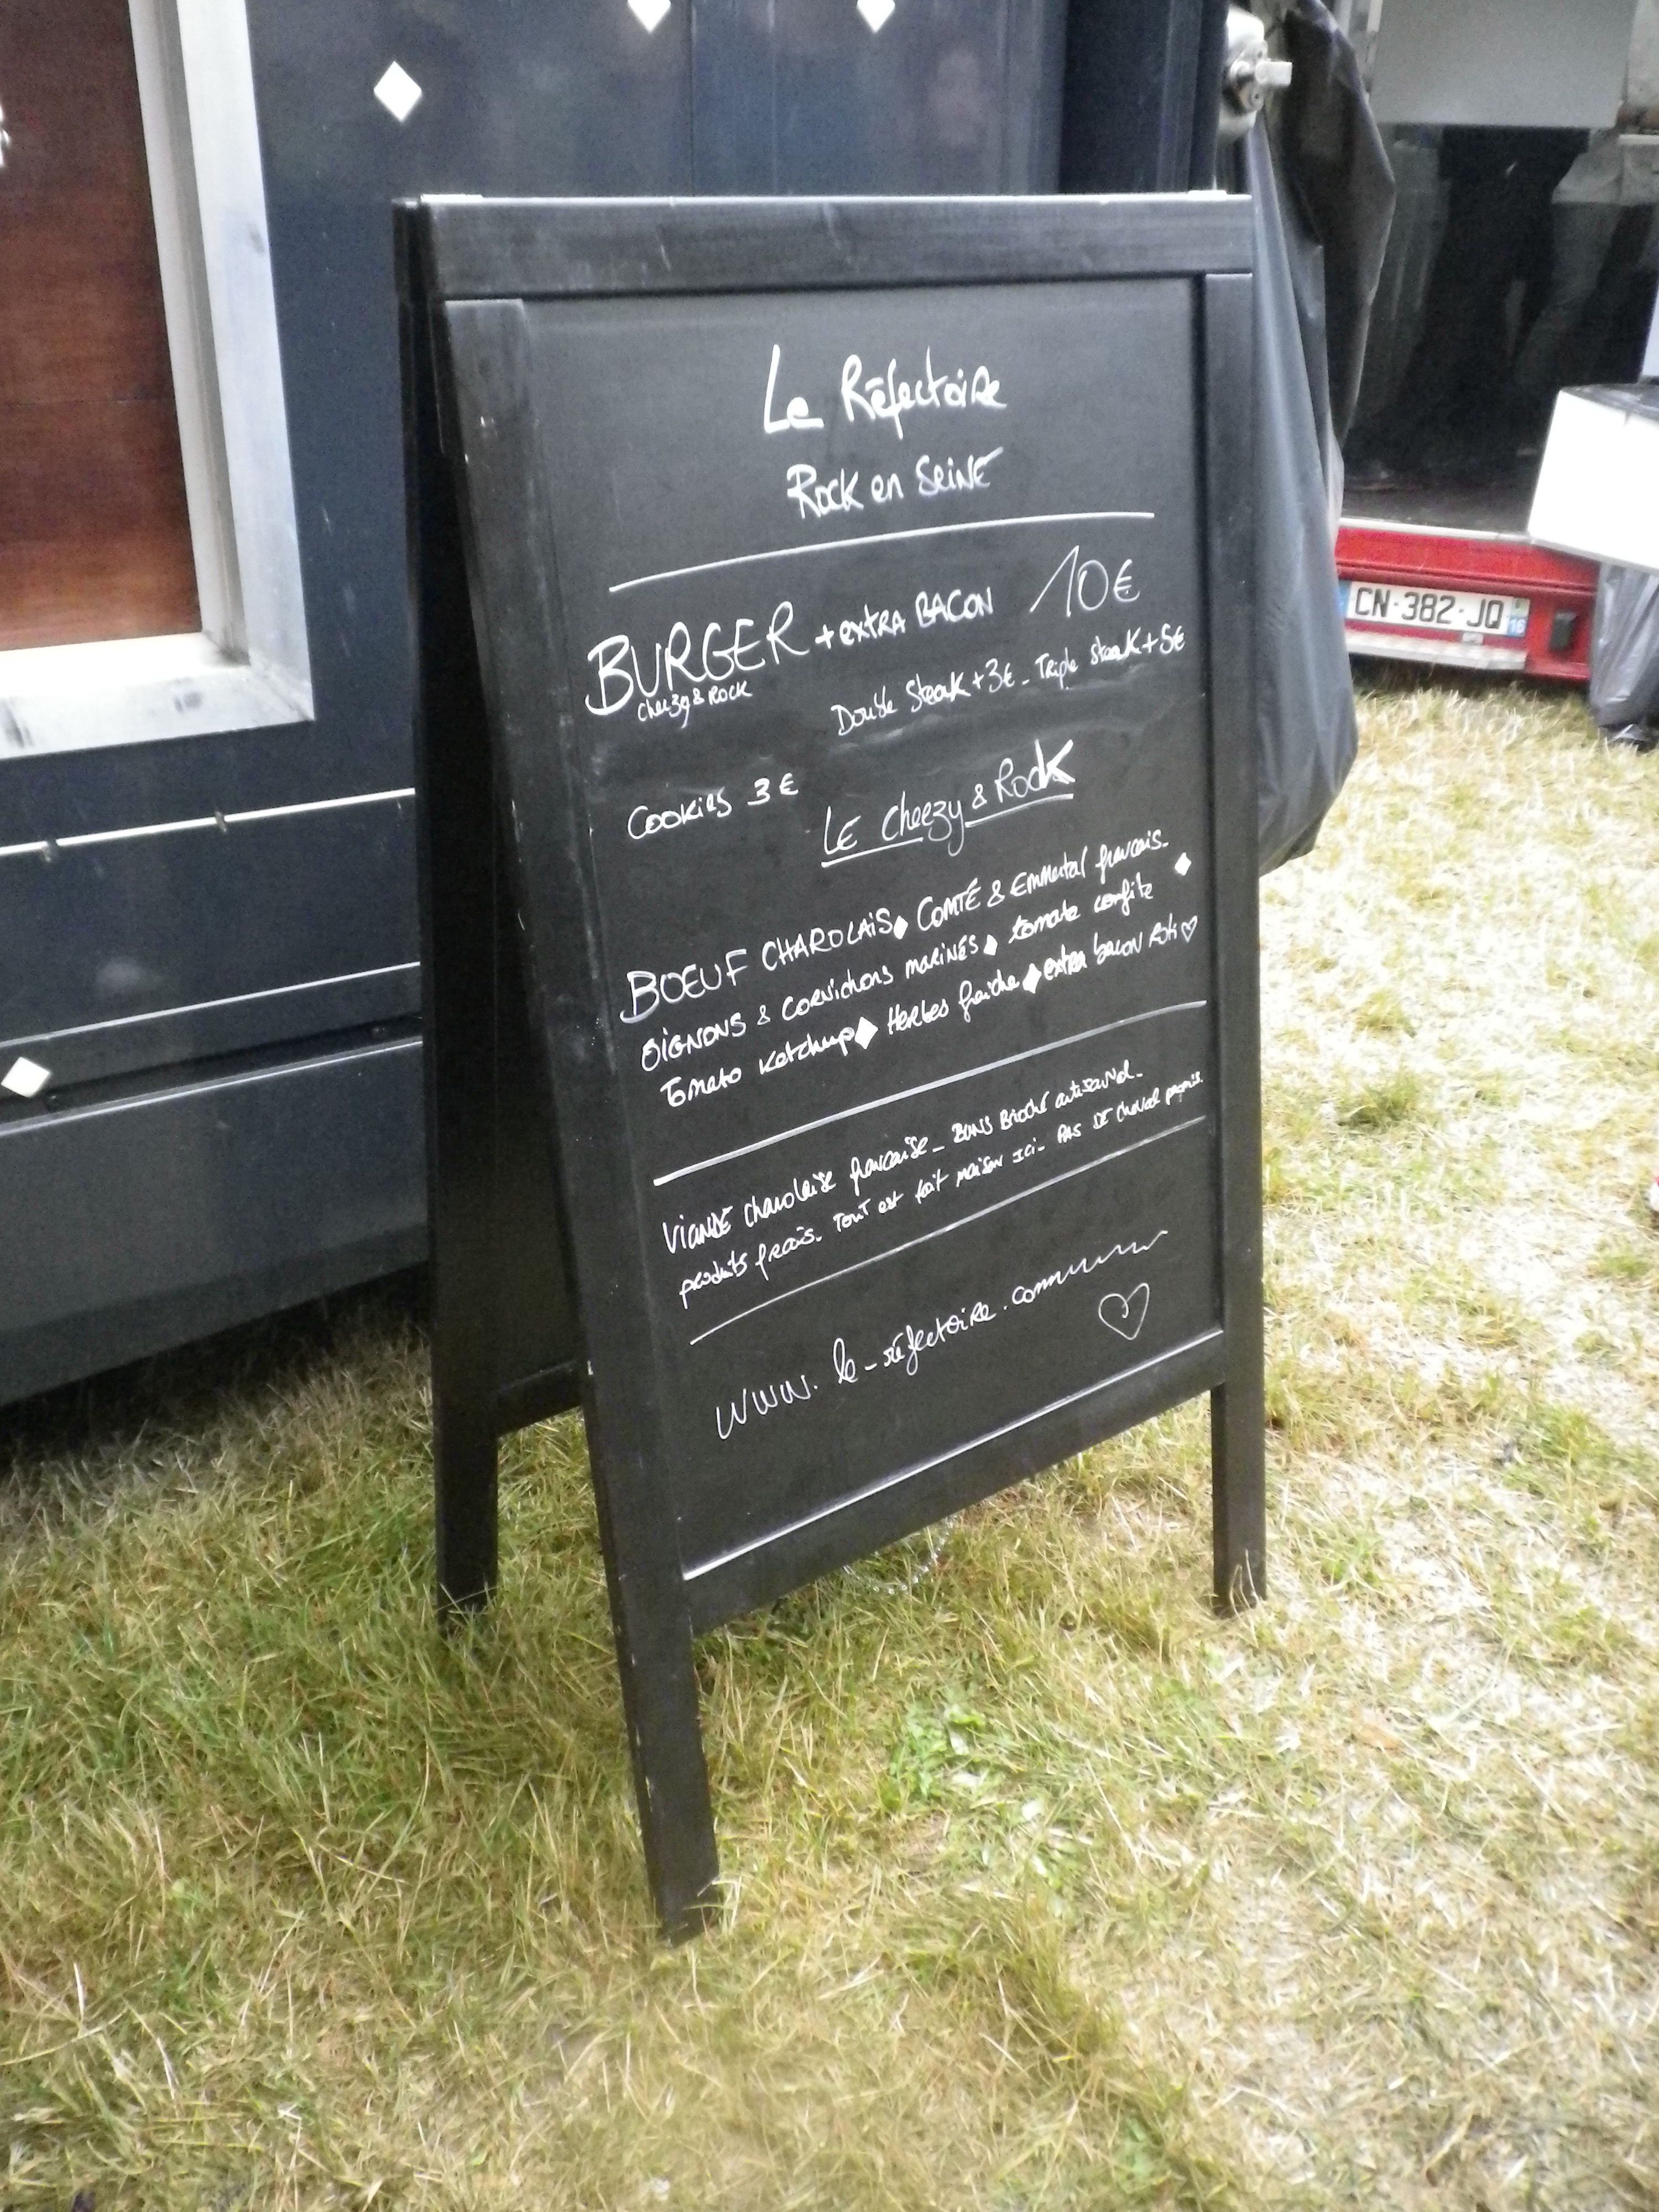 Le Réfectoire
Rock en Seine
BURGER + extra BACON 10€
cheezy & Rock
Double Steak +3€ - Triple steak +5€
Cookies 3€
LE Cheezy & Rock
BOEUF CHAROLAIS ♦ COMTÉ & Emmental francais. ♦
OIGNONS & CORNichons marinés ♦ tomate confite
Tomato Ketchup ♦ Herbes fraiche ♦ extra bacon Roti ♡
VIANDE charolaise francaise - BUNS Brioché artisanal -
produits frais. Tout est fait maison ici - PAS DE cheval promis.
www.le-réfectoire.commmmm
CN-382-JQ
16